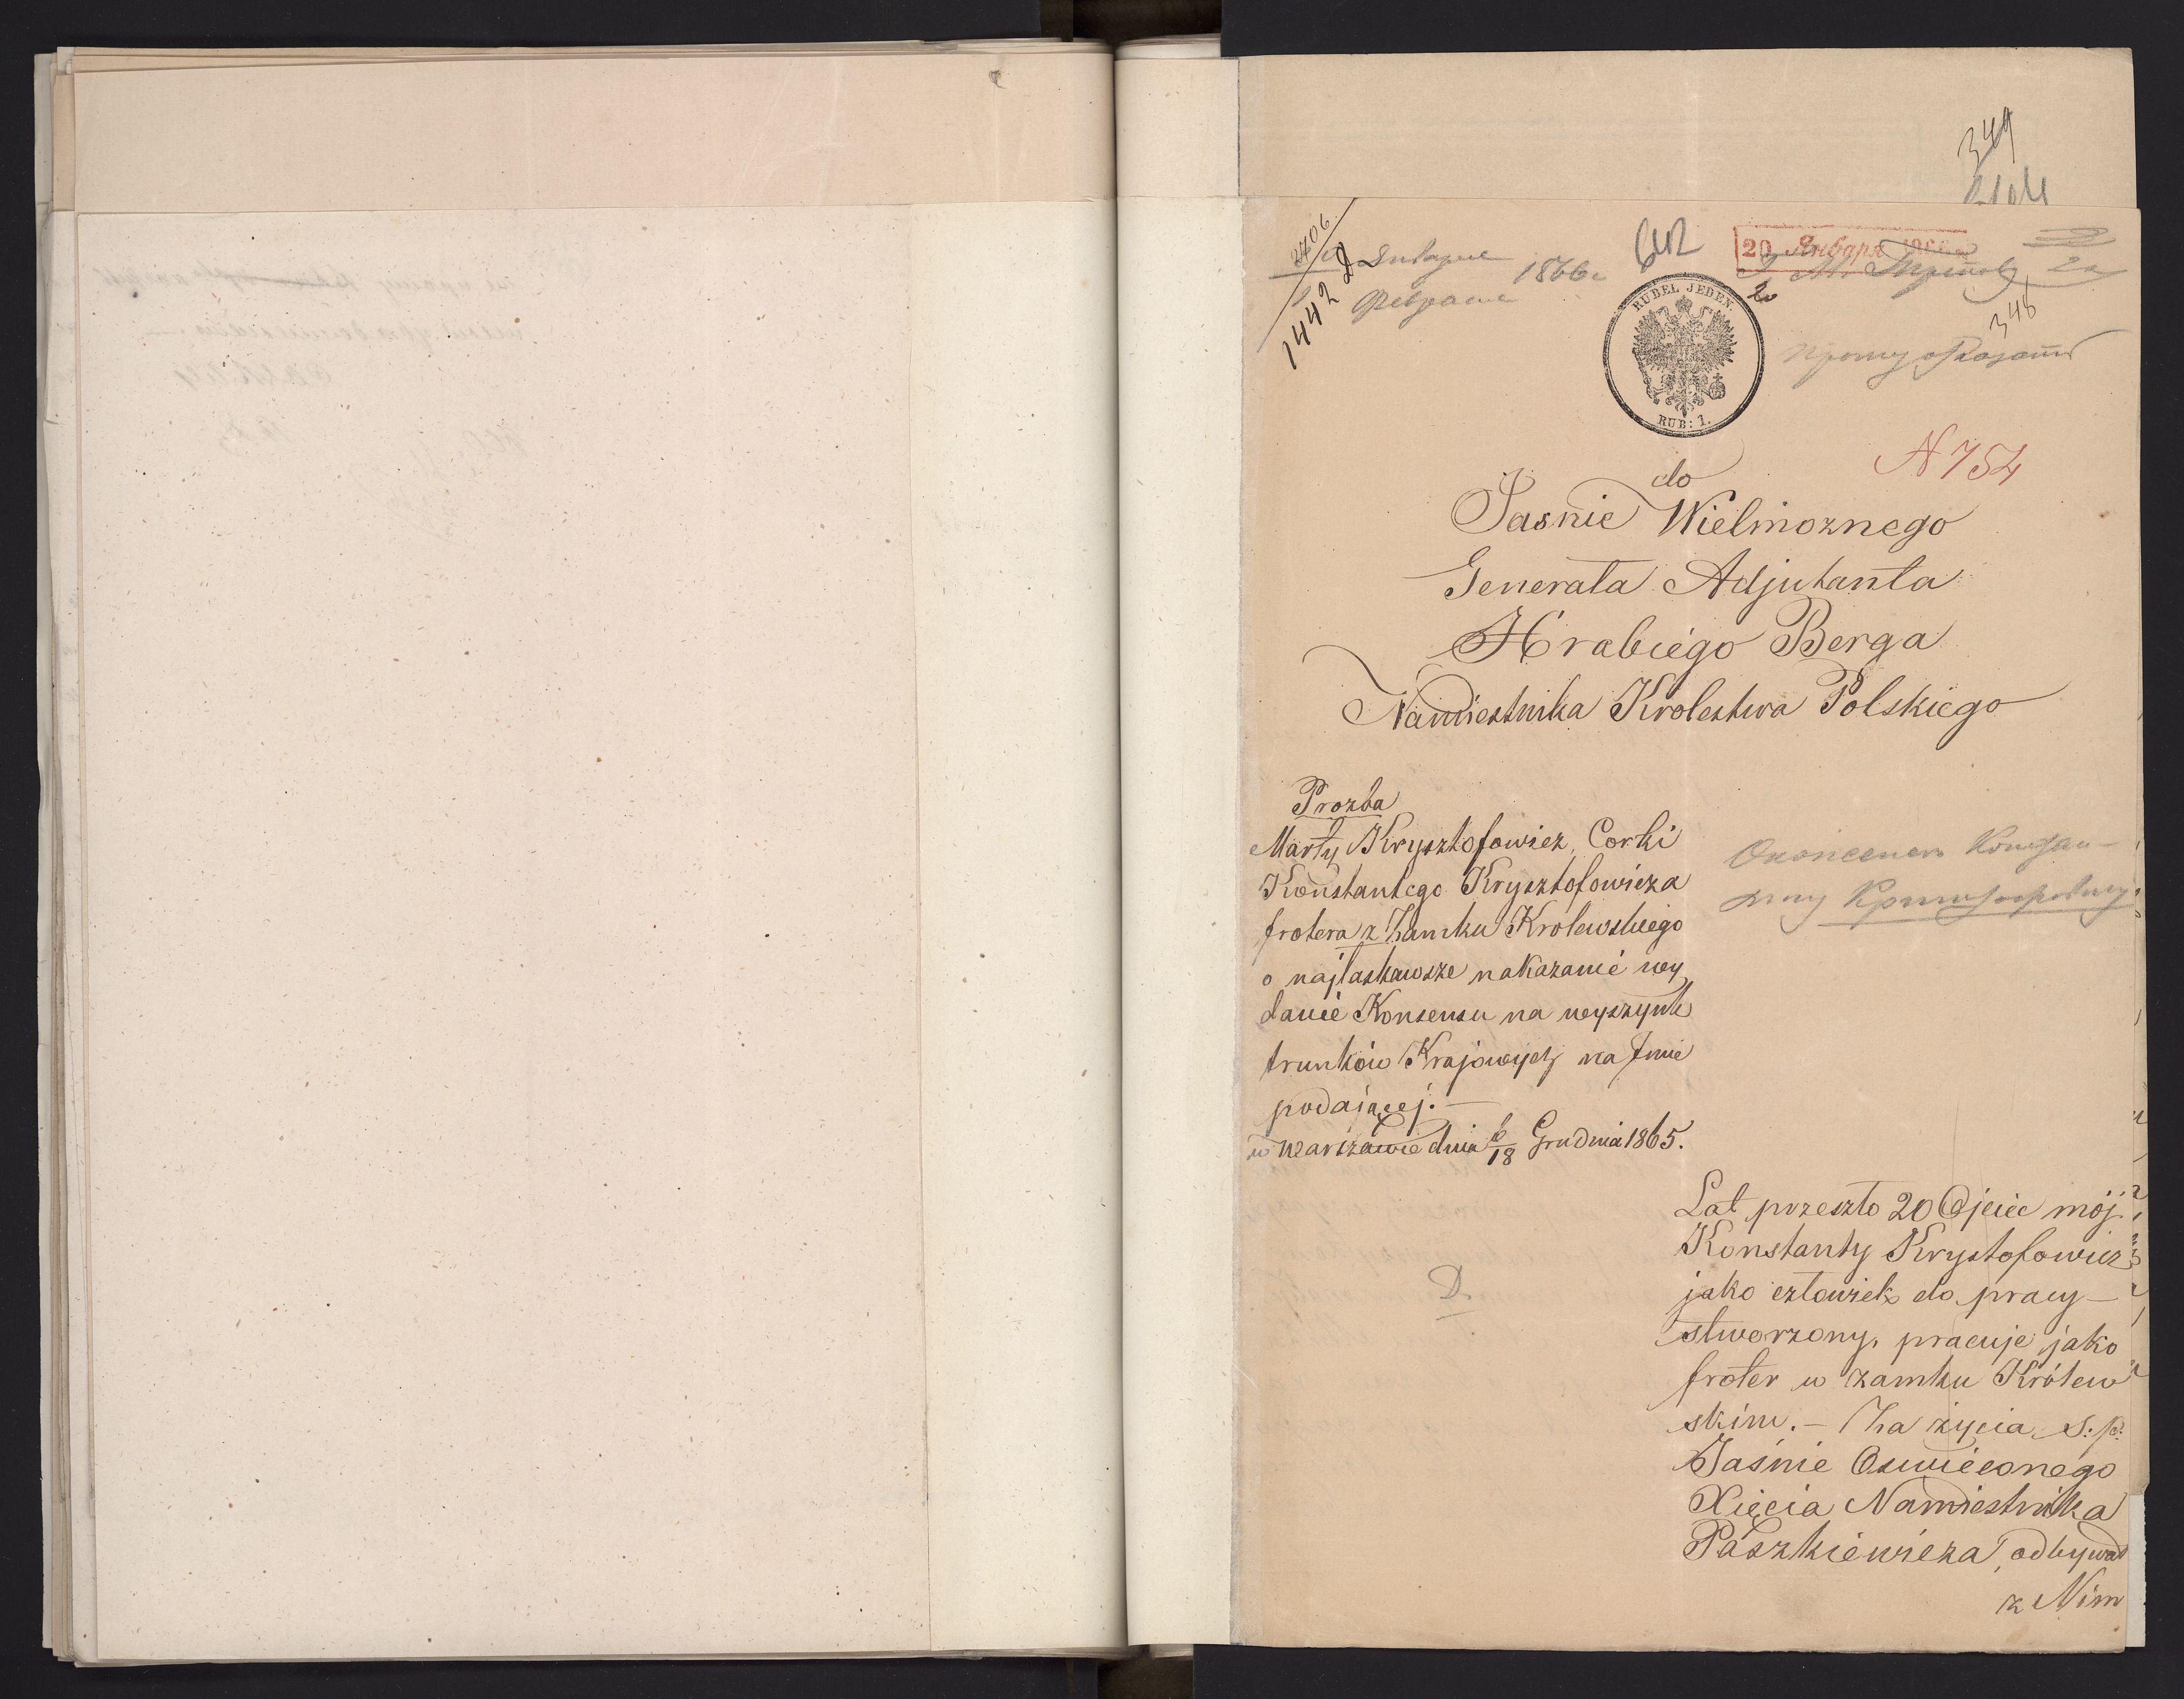 349
2706
1442
Января
Февраля
1866 г.
612
20 Января
RUBEL JEDEN.
RUB: 1.
348
прошу
N 754
do
Jasnie Wielmoznego
Generała Adjutanta
Hrabiego Berga
Namiestnika Krolestwa Polskiego
Prozba
Marty Krysztofowicz, Corki
Konstantego Krysztofowicza
frotera z Zamku Krolewskiego
o najłaskawsze nakazanie wy
danie Konsensu na wyszynk
trunków Krajowych na Jmie
podającej.—
w Warszawie dnia 6/18 Grudnia 1865.
Lat przeszło 20 Ojciec mój
Konstanty Krystofowicz
jako człowiek do pracy—
stworzony, pracuje jako
froter w zamku Królew
skim.— Za życia S: p:
Jaśnie Oswieconego
Xięcia Namiestnika
Paszkiewicza, odbywał
z Nim
D